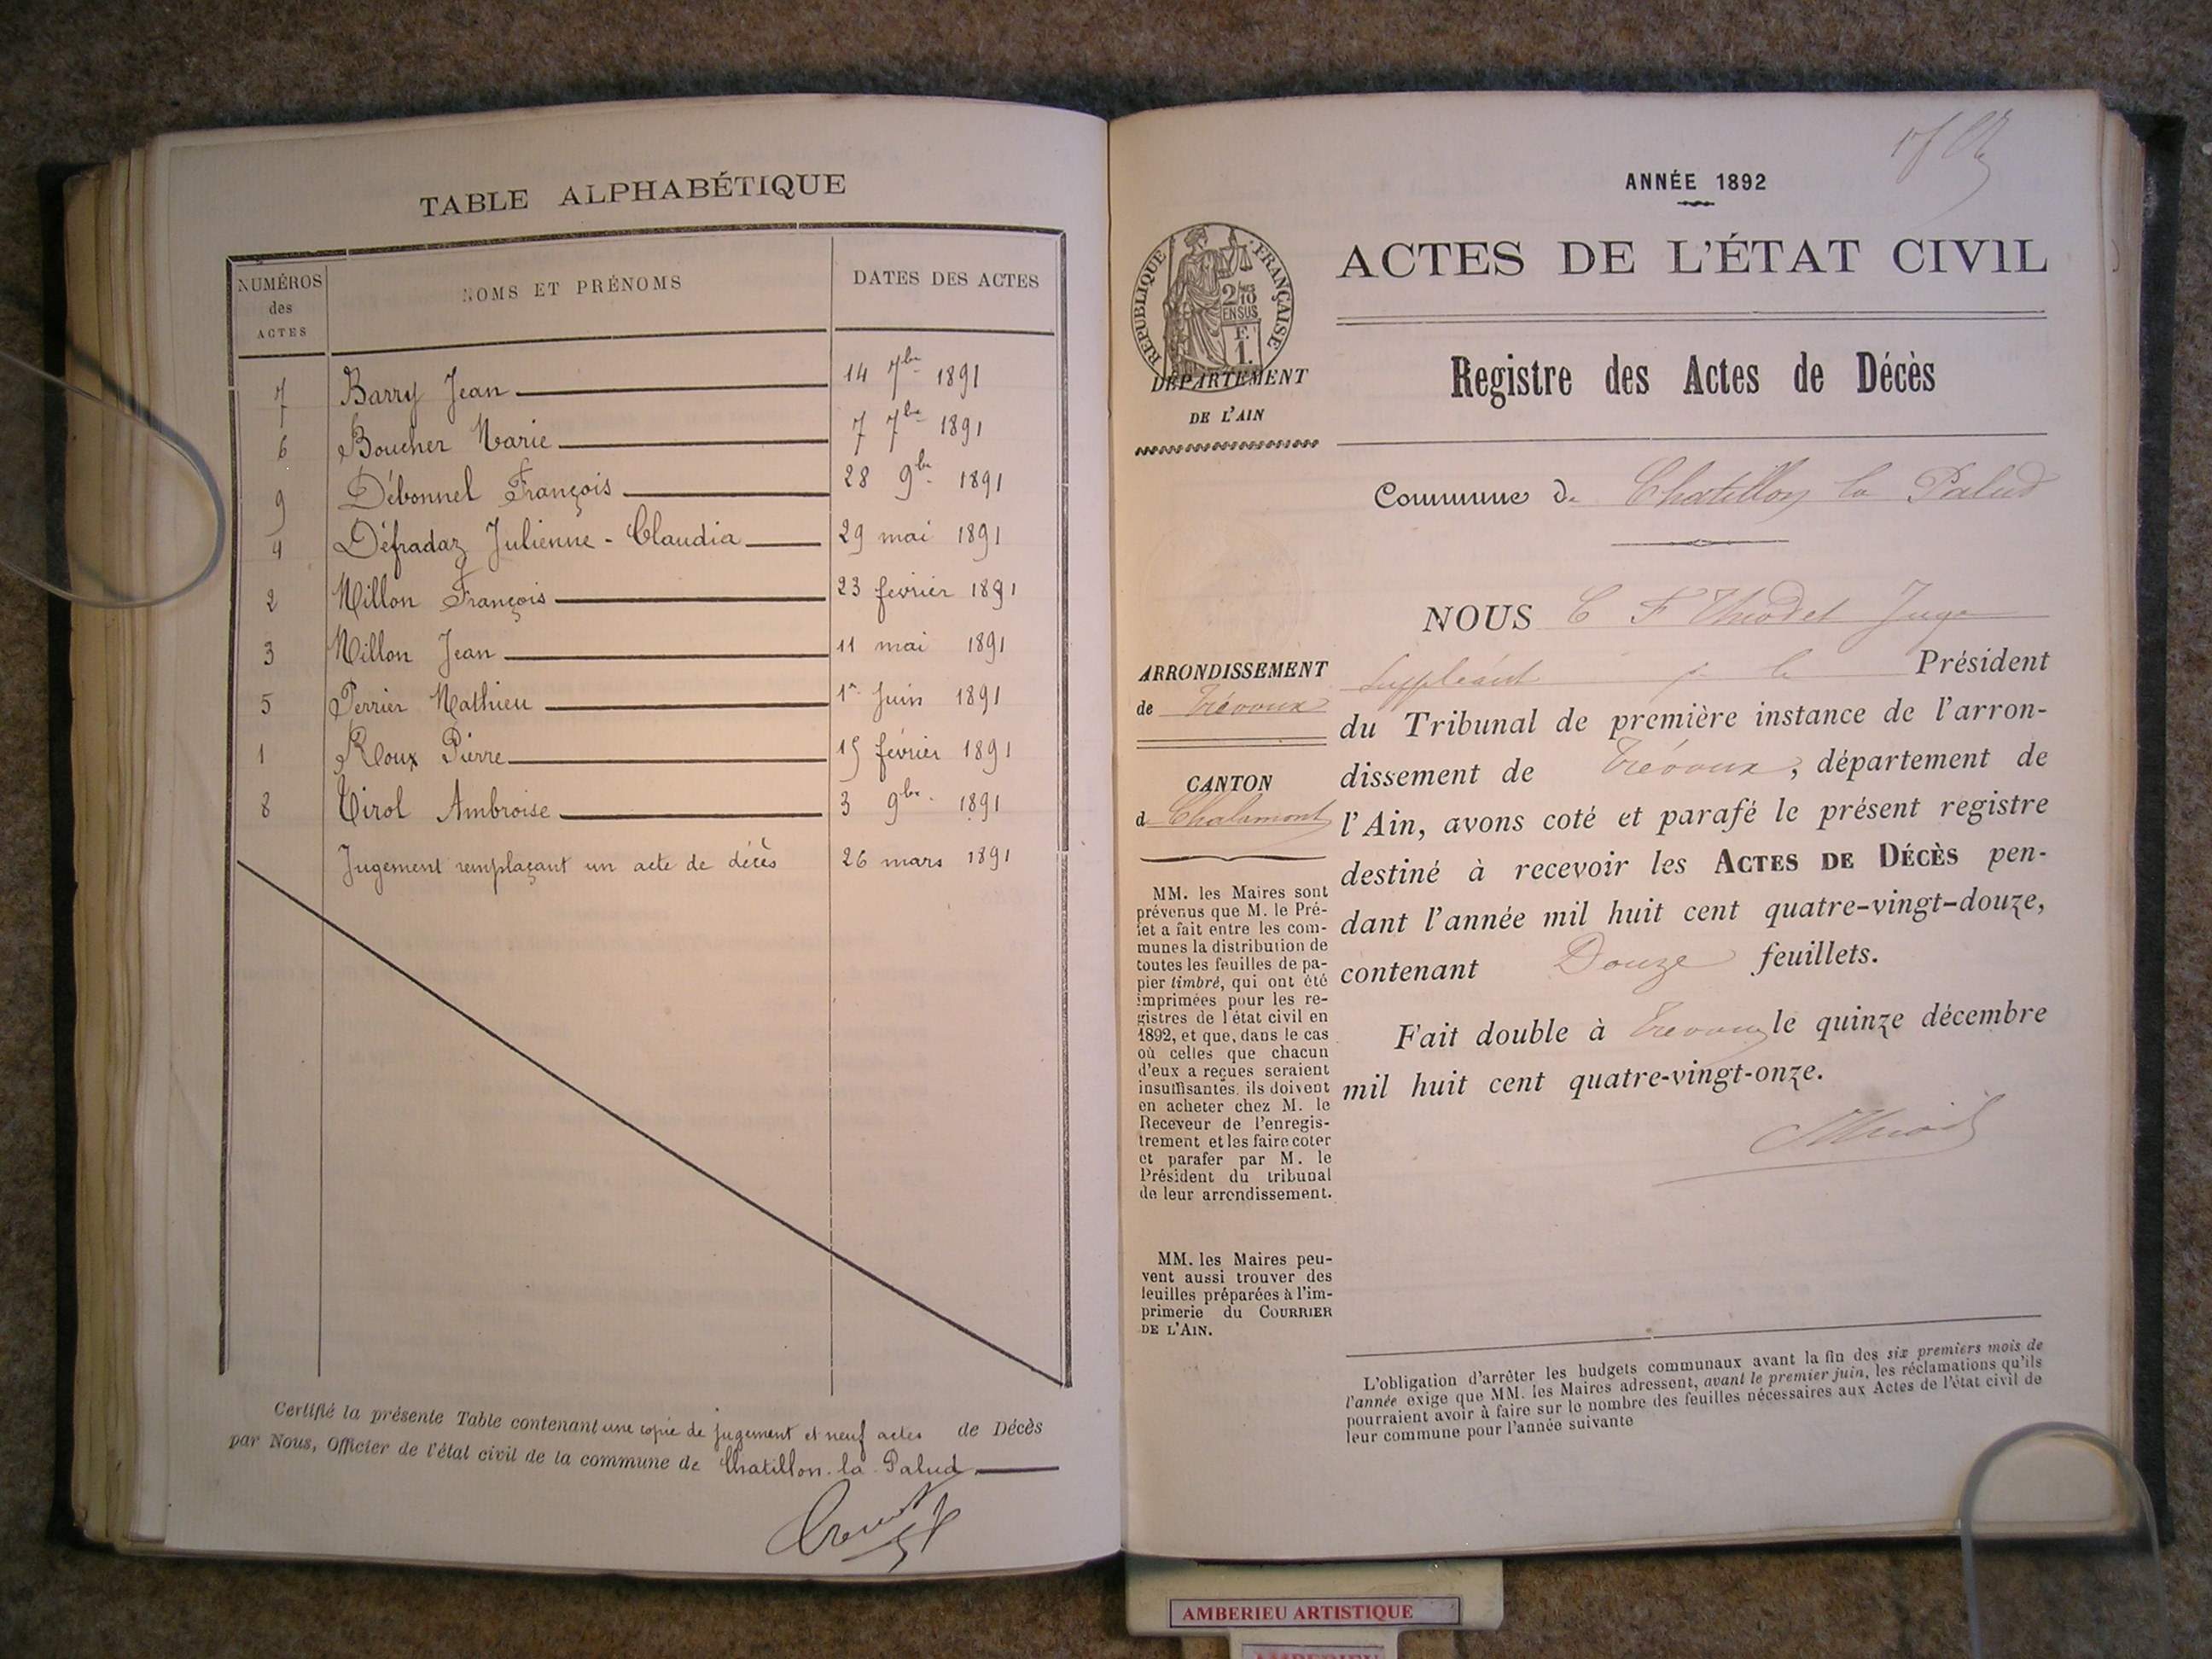 TABLE ALPHABÉTIQUE
NUMÉROS des ACTES
NOMS ET PRÉNOMS
DATES DES ACTES
7 Barry Jean 14 7bre 1891
6 Boucher Marie 7 7bre 1891
9 Débonnel François 28 9bre 1891
4 Défradaz Julienne - Claudia 29 mai 1891
2 Millon François 23 février 1891
3 Millon Jean 11 mai 1891
5 Perrier Mathieu 1er Juin 1891
1 Roux Pierre 15 février 1891
8 Tirol Ambroise 3 9bre 1891
Jugement remplaçant un acte de décès 26 mars 1891
Certifié la présente Table contenant une copie de jugement et neuf actes de Décès
par Nous, Officier de l'état civil de la commune de Chatillon-la-Palud
ANNÉE 1892
RÉPUBLIQUE FRANÇAISE
ACTES DE L'ÉTAT CIVIL
DÉPARTEMENT
DE L'AIN
Registre des Actes de Décès
Commune de Chatillon la Palud
NOUS C F Juge
Suppléant le Président
du Tribunal de première instance de l'arron-
dissement de Trévoux, département de
l'Ain, avons coté et parafé le présent registre
destiné à recevoir les ACTES DE DÉCÈS pen-
dant l'année mil huit cent quatre-vingt-douze,
contenant Douze feuillets.
Fait double à Trévoux le quinze décembre
mil huit cent quatre-vingt-onze.
ARRONDISSEMENT
de Trévoux
CANTON
d Chalamont
MM. les Maires sont
prévenus que M. le Pré-
fet a fait entre les com-
munes la distribution de
toutes les feuilles de pa-
pier timbré, qui ont été
imprimées pour les re-
gistres de l'état civil en
1892, et que, dans le cas
où celles que chacun
d'eux a reçues seraient
insuffisantes, ils doivent
en acheter chez M. le
Receveur de l'enregis-
trement et les faire coter
et parafer par M. le
Président du tribunal
de leur arrondissement.
MM. les Maires peu-
vent aussi trouver des
feuilles préparées à l'im-
primerie du COURRIER
DE L'AIN.
L'obligation d'arrêter les budgets communaux avant la fin des six premiers mois de
l'année exige que MM. les Maires adressent, avant le premier juin, les réclamations qu'ils
pourraient avoir à faire sur le nombre des feuilles nécessaires aux Actes de l'état civil de
leur commune pour l'année suivante
AMBERIEU ARTISTIQUE
AMBERIEU